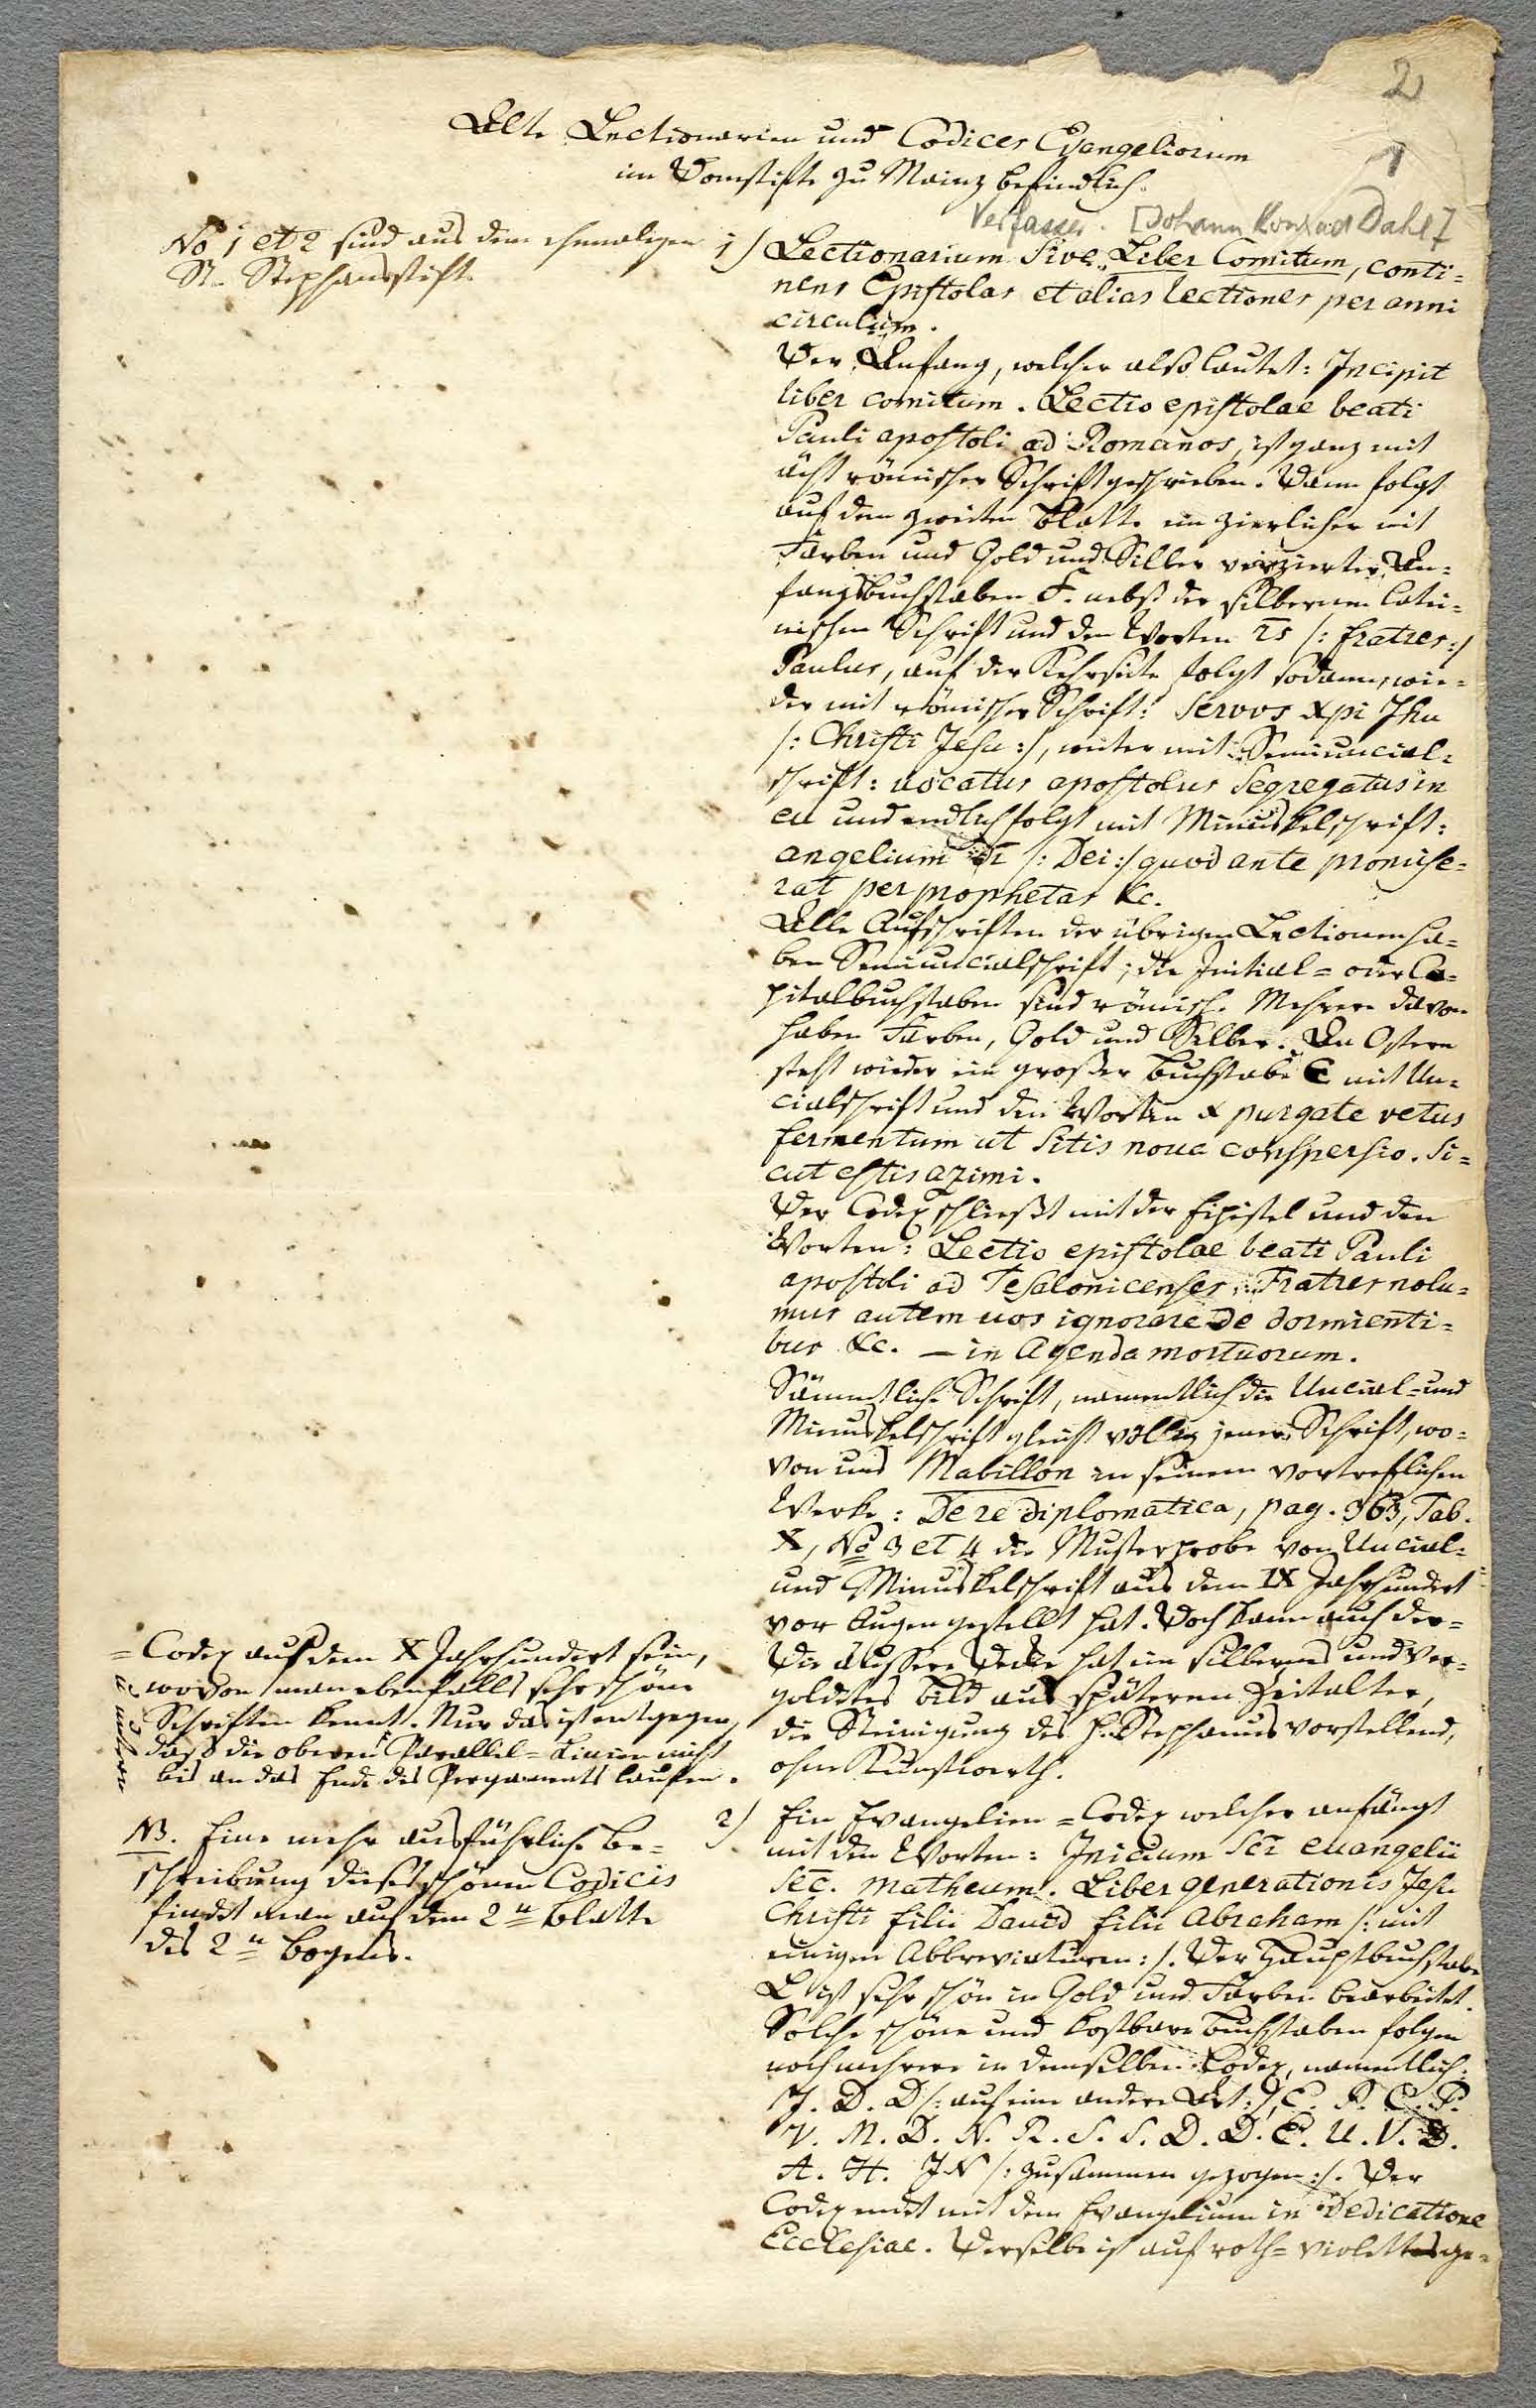 2
1
Alte Lectionarien und Codices Evangeliorum
im Domstifte zu Mainz befindlich.
Verfasser. [Johann Konrad Dahl]
No 1 et 2 sind aus dem ehemaligen
St. Stephansstift.
1) Lectionarium Sive Liber Comitum, conti=
nens Epistolas et alias lectiones per anni
circulum.
Der Anfang, welcher also lautet: Incipit
liber comitum. Lectio epistolae beati
Pauli apostoli ad Romanos, ist ganz mit
ächt römischer Schrift geschrieben. Dann folgt
auf dem zweiten Blatte ein zierlicher mit
Farben und Gold und Silber verzierter An=
fangsbuchstaben F. nebst der silbernen latei=
nischen Schrift und den Worten rs /: fratres :/
Paulus, auf der Kehrseite folgt sodann, wie=
der mit römischer Schrift: Servos xpi Jhu
/: Christi Jesu :/, weiter mit Semiuncial=
schrift: uocatus apostolus Segregatus in
eu und endlich folgt mit Minuskelschrift:
angelium di /: Dei :/ quod ante promise=
rat per prophetas &c.
Alle Aufschriften der übrigen Lectionen ha=
ben Semiuncialschrift; die Initial= oder Ca=
pitalbuchstaben sind römisch. Mehrere davon
haben Farben, Gold und Silber. An Ostern
steht wieder ein großer Buchstabe E mit Un=
cialschrift und den Worten x purgate vetus
fermentum ut sitis noua conspersio. Si=
cut estis azimi.
Der Codex schließt mit der Epistel und den
Worten: Lectio epistolae beati Pauli
apostoli ad Tesalonicenses. Fratres nolu=
mus autem uos ignorare de dormienti=
bus &c. — in Agenda mortuorum.
Sämmtliche Schrift, namentlich die Uncial= und
Minuskelschrift gleicht völlig jener Schrift, wo=
von uns Mabillon in seinem vortrefflichen
Werke: De re diplomatica, pag. 363, Tab.
X, No 3 et 4 die Musterprobe von Uncial=
und Minuskelschrift aus dem IX Jahrhundert
vor Augen gestellt hat. Doch kann auch der=
= Codex aus dem X Jahrhundert sein,
wovon man ebenfalls sehr schöne
Schriften kennt. Nur das ist entgegen,
daß die oberen Parallel=Linien nicht
bis an das Ende des Pergaments laufen.
u. untern
Die äussere Decke hat ein silbernes und ver=
goldetes Bild aus späterem Zeitalter,
die Steinigung des h. Stephanus vorstellend,
ohne Kunstwerth.
NB. Eine mehr ausführliche Be=
schreibung dieses schönen Codicis
findet man auf dem 2n Blatte
des 2n Bogens.
2) Ein Evangelien=Codex welcher anfängt
mit den Worten: Inicium Sci euangelii
Sec. matheum. Liber generationis Jesu
Christi filii David filii Abraham /: mit
einigen Abbreviaturen :/. Der Hauptbuchstabe
L ist sehr schön in Gold und Farben bearbeitet.
Solche schöne und kostbare Buchstaben folgen
noch mehrere in demselben Codex, namentlich:
J. D. D /: auf eine andere Art :/, E. P. C. P.
V. M. D. N. R. S. S. D. D. E. U. V. D.
A. H. JN /: zusammen gezogen :/. Der
Codex endet mit dem Evangelium in Dedicatione
Ecclesiae. Derselbe ist auf roth= violettes ge=